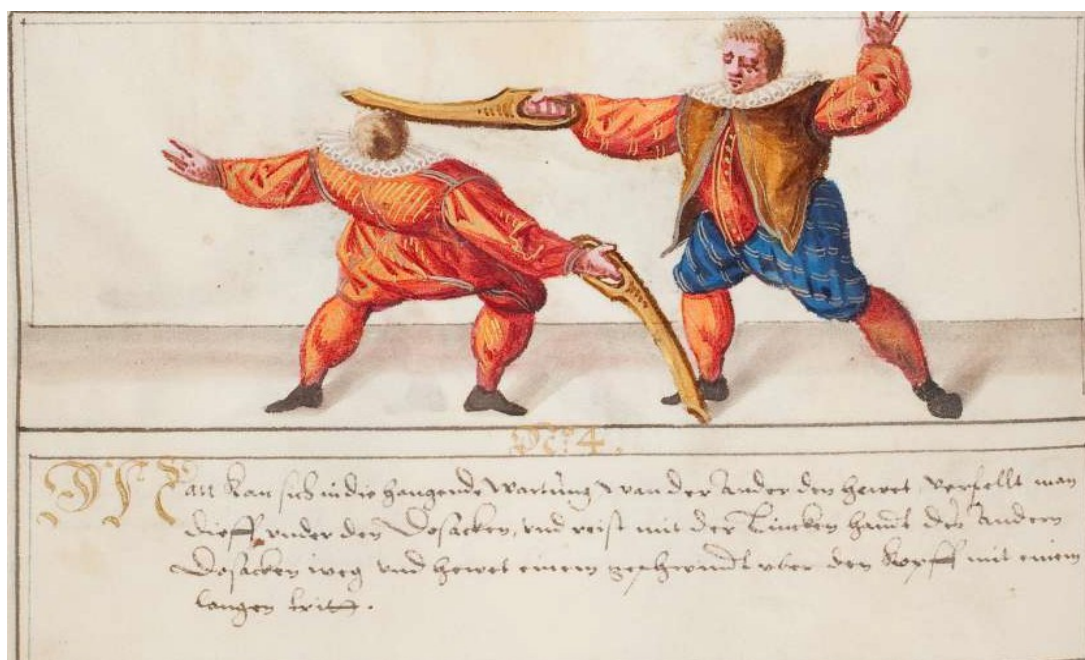 No 4.
Man kan sich in die hangende Wartung, wan der Ander den hewet, verfellt man
dieff vnder den Dosacken, vnd reist mit der Lincken handt des Andern
Dosacken weg vnd hewet einem geschwindt vber den Kopff mit einem
langen tritt.